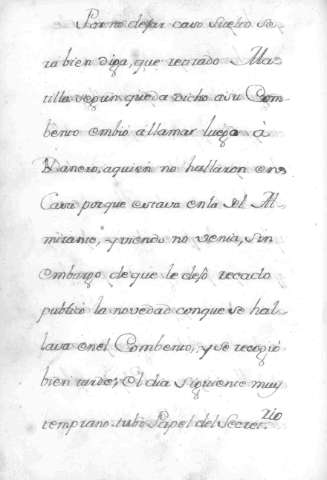 Por no dejar caso suelto se-
ra bien diga, que retirado Ma-
tilla segun queda dicho a su Com-
bento embió a llamar luego à
Danero, a quien no hallaron en
Casa porque estava en la del Al-
mirante, y viendo no venia, sin
embargo de que le dejò recado
publicò la novedad con que se hal-
lava en el Combento, y se recogiò
bien tarde; el dia siguiente muy
temprano tubo Papel del Secret.rio